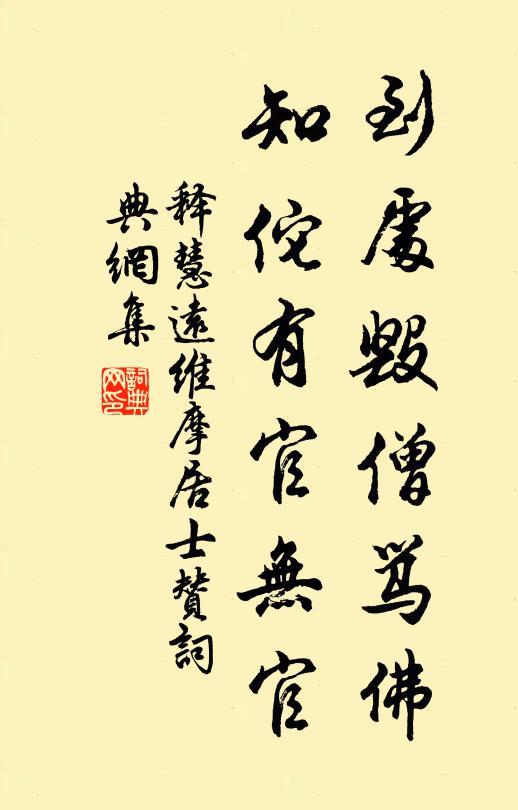 到處毀僧罵佛
知佗有官無官
释慧遠維摩居士贊詞
典網集
詞典網印